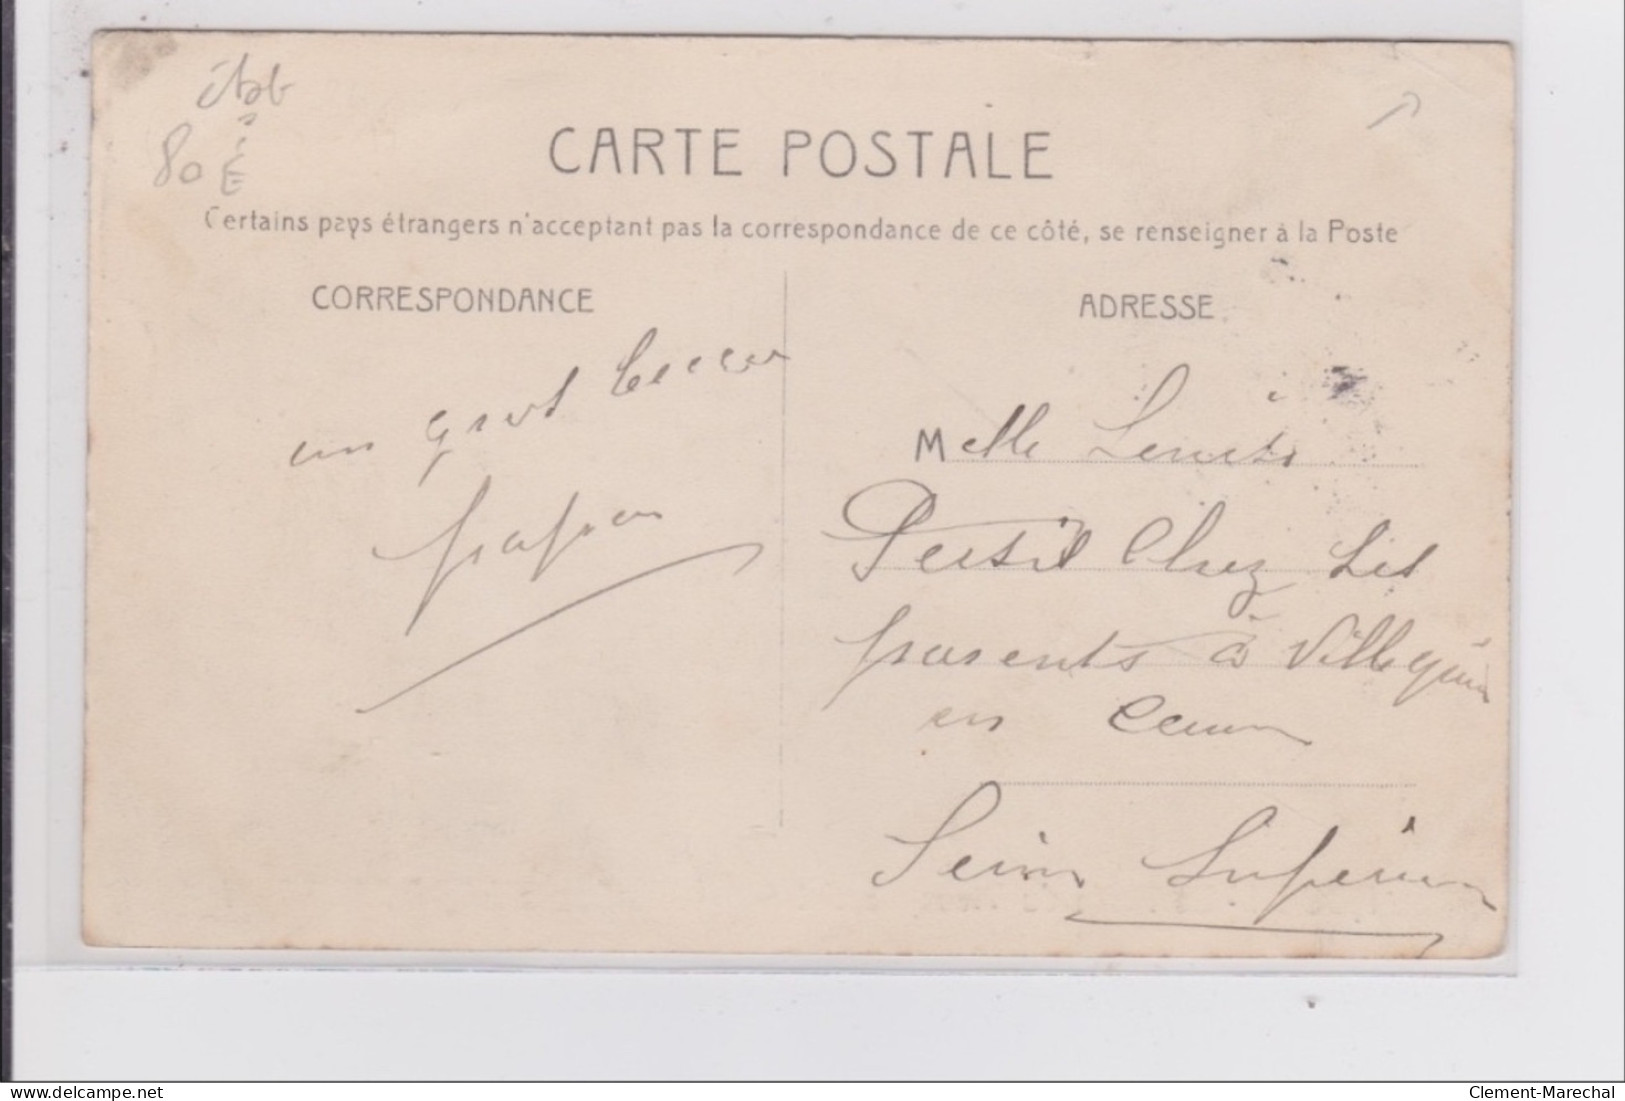 étab
80 E
CARTE POSTALE
Certains pays étrangers n'acceptant pas la correspondance de ce côté, se renseigner à la Poste
CORRESPONDANCE
ADRESSE
un gros
papa
Melle
Persil Chez Ses
parents à Villequier
en
Seine Inférieure
delcampe.net
Clement-Marechal